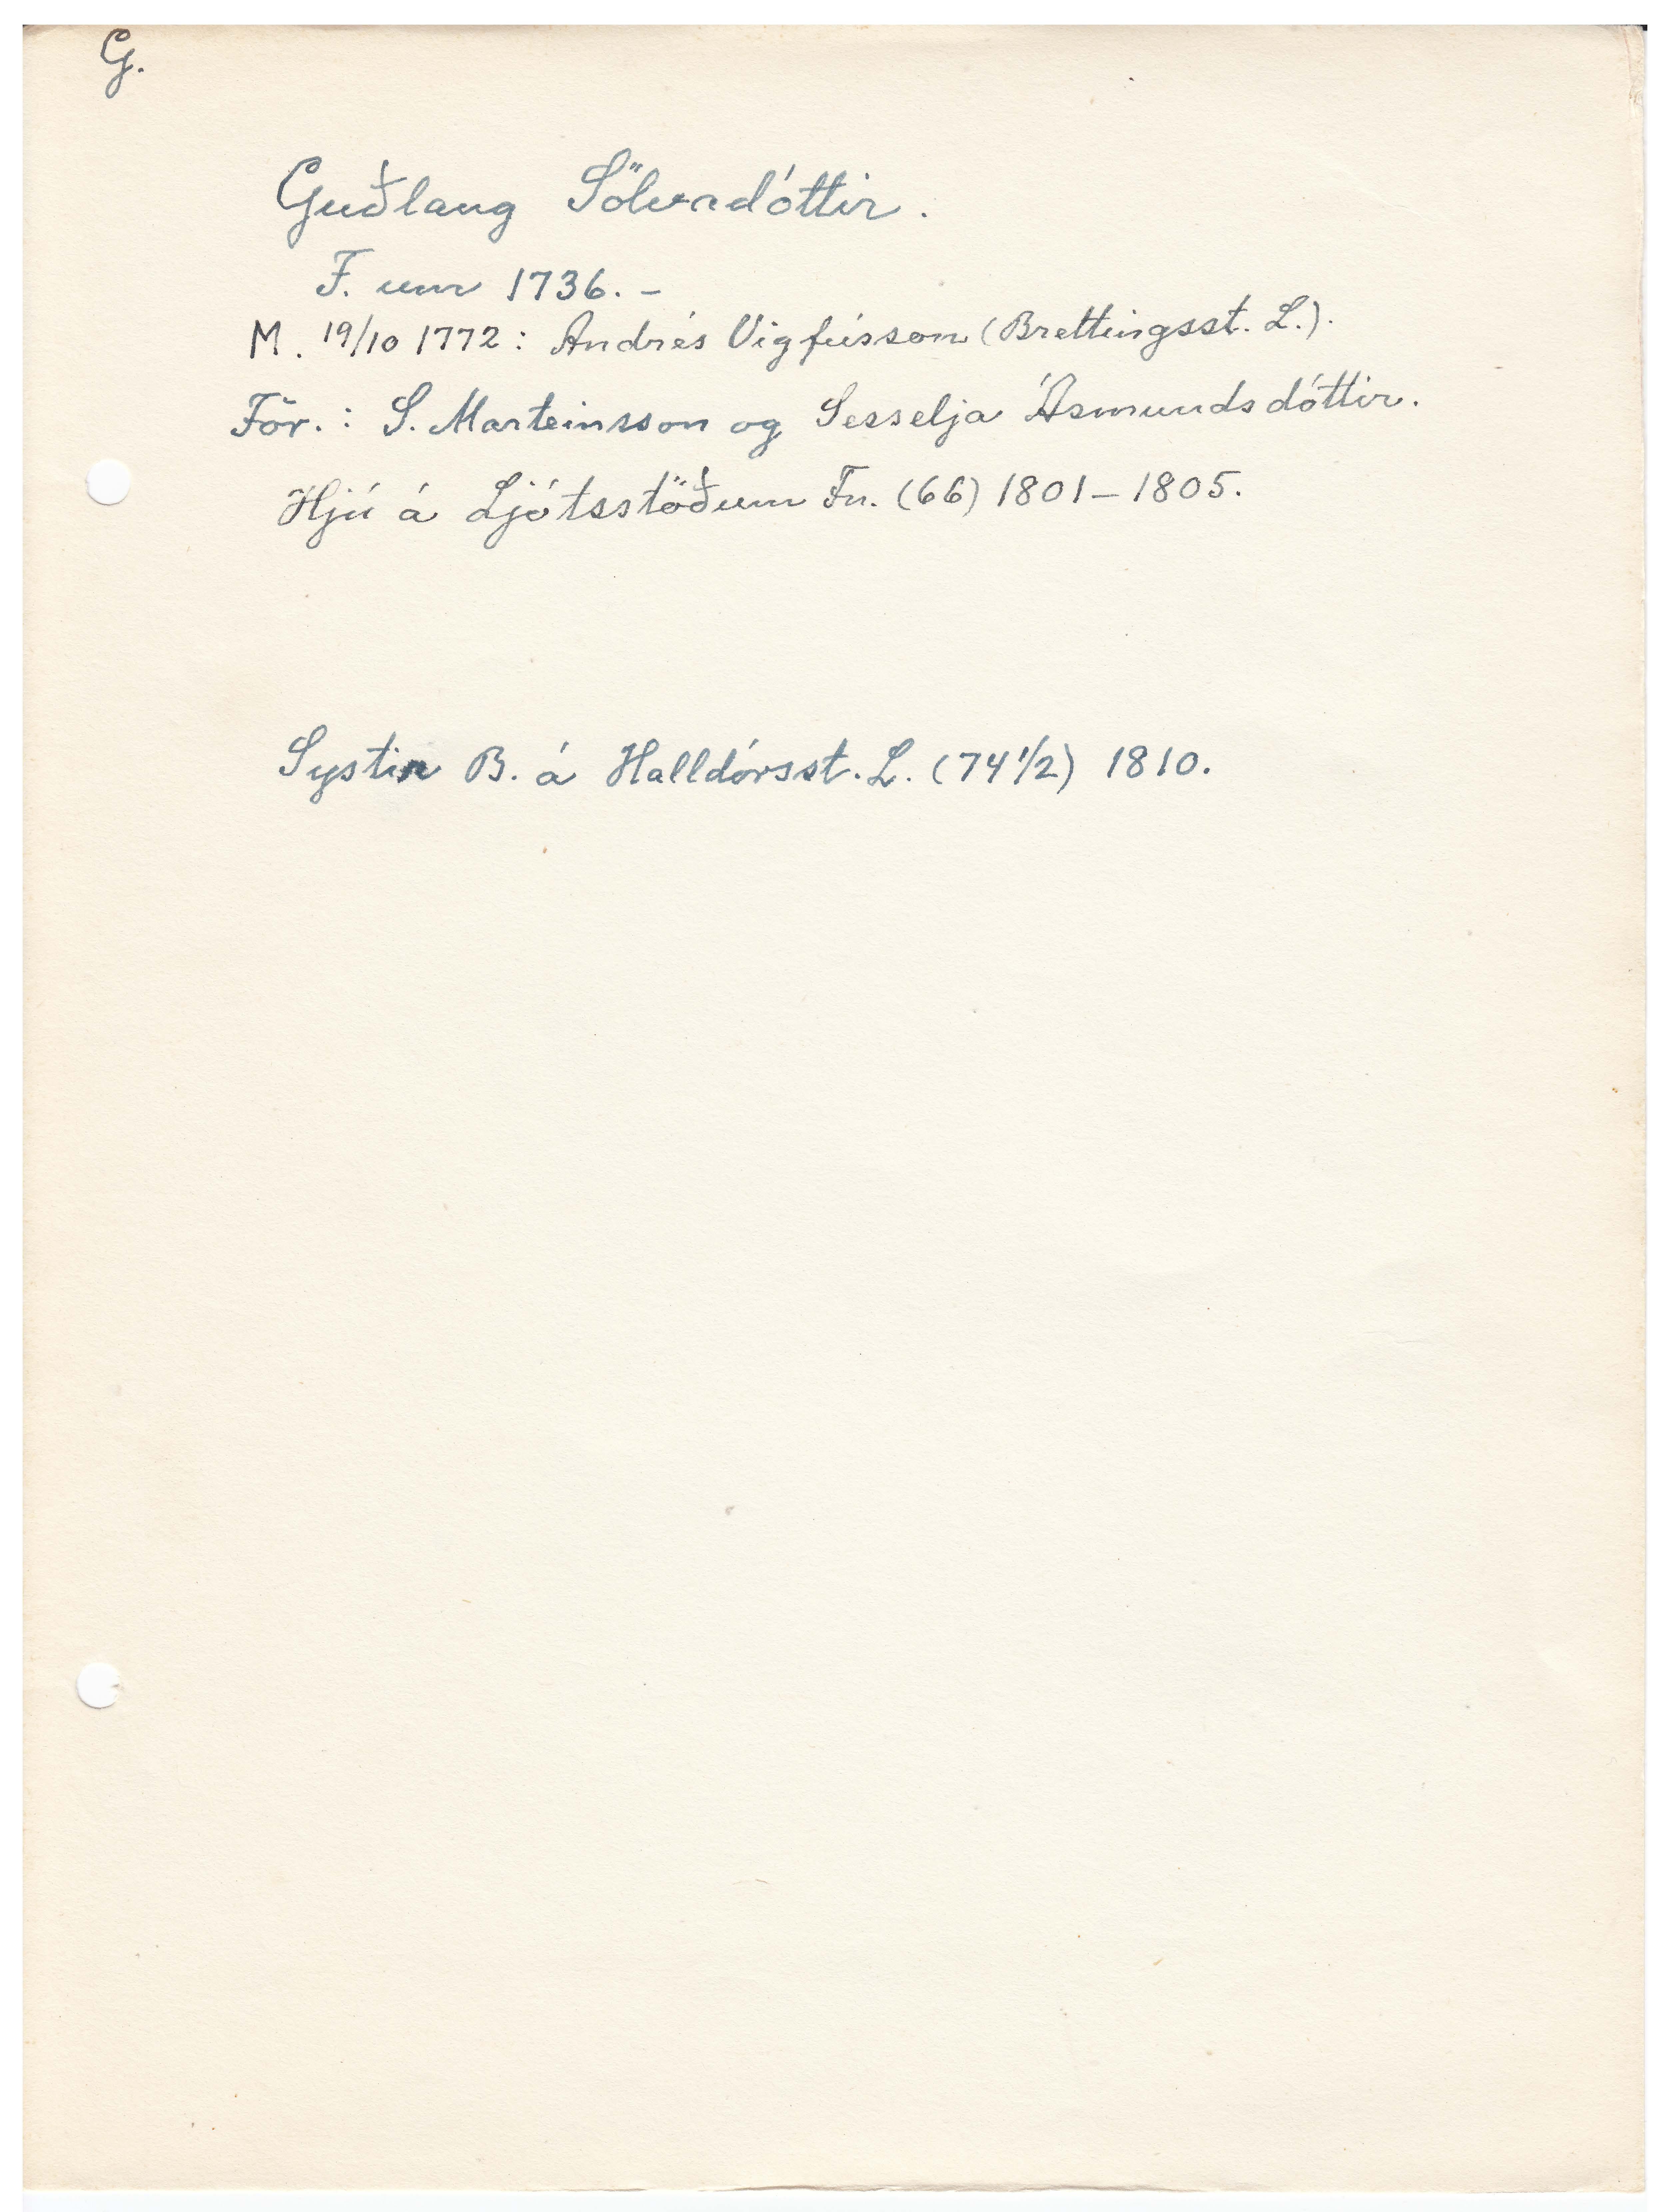 G.
Guðlaug Sölvadóttir.
F. um 1736. –
M. 19/10 1772: Andrés Vigfússon (Brettingsst. L.).
För.: S. Marteinsson og Sesselja Ásmundsdóttir.
Hjú á Ljótsstöðum Fn. (66) 1801–1805.
Systir B. á Halldórsst. L. (74 1/2) 1810.